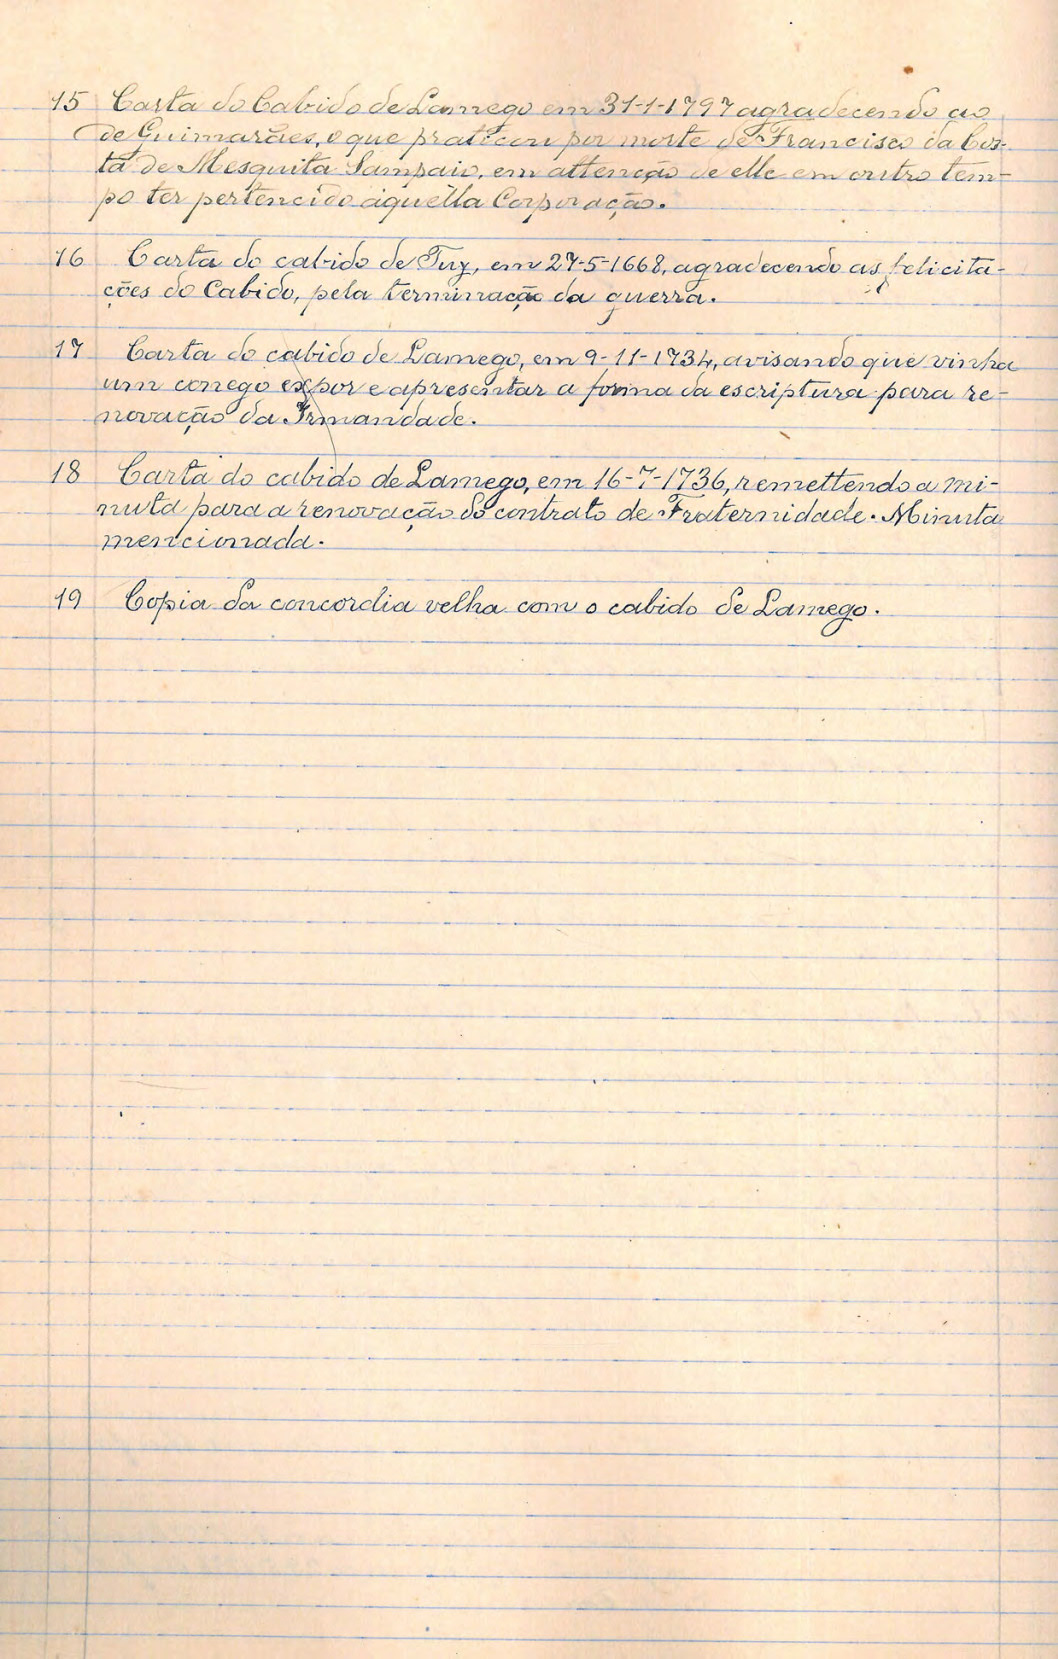 15 Carta do Cabido de Lamego em 31-1-1797 agradecendo ao
de Guimarães, o que praticou por morte de Francisco da Cos-
ta de Mesquita Sampaio, em attenção de elle em outro tem-
po ter pertencido áquella Corporação.
16 Carta do cabido de Tuy, em 27-5-1668, agradecendo as felicita-
ções do Cabido, pela terminação da guerra.
17 Carta do cabido de Lamego, em 9-11-1734, avisando que vinha
um conego expor e apresentar a forma da escriptura para re-
novação da Irmandade.
18 Carta do cabido de Lamego, em 16-7-1736, remettendo a mi-
nuta para a renovação do contrato de Fraternidade. Minuta
mencionada.
19 Copia da concordia velha com o cabido de Lamego.